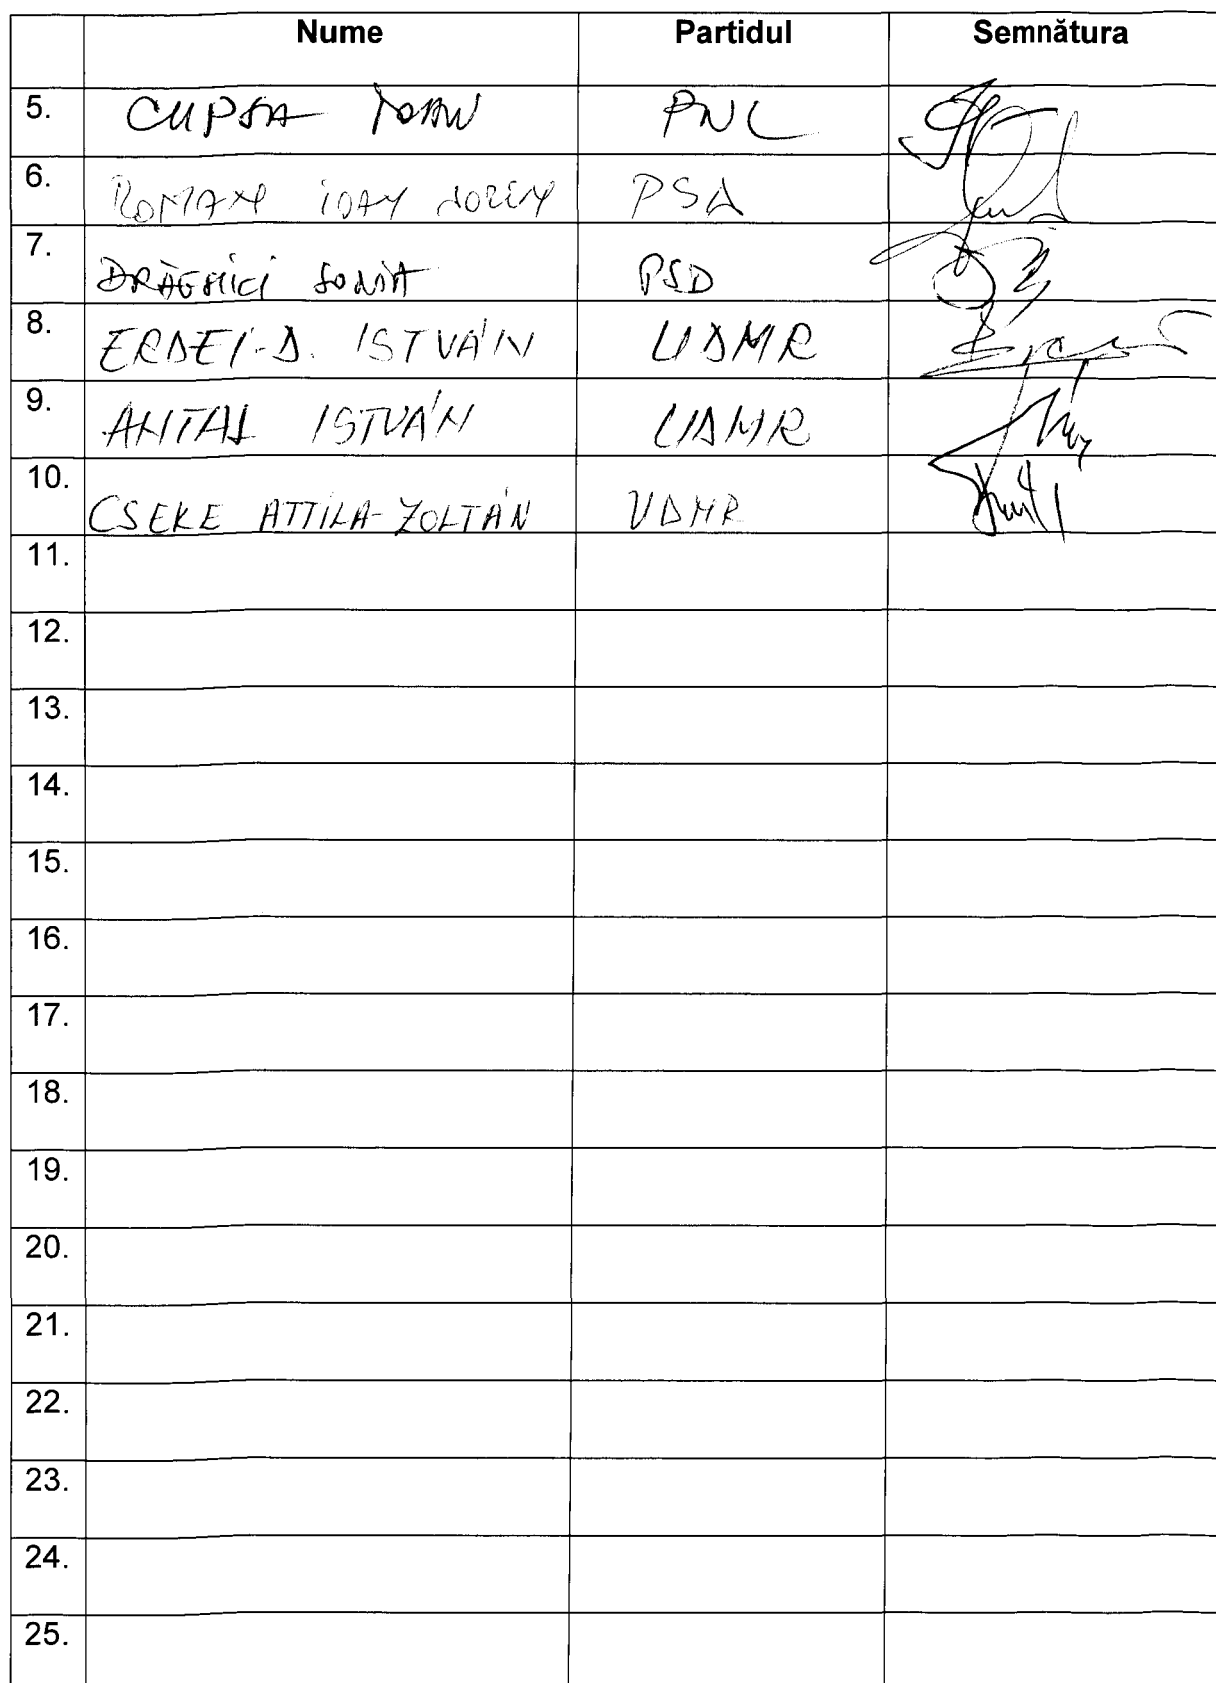 Nume Partidul Semnătura
5. CUPSA IOAN PNL
6. ROMAN IOAN SORIN PSD
7. DRĂGHICI SONIA PSD
8. ERDEI-D. ISTVÁN UDMR
9. ANTAL ISTVÁN UDMR
10. CSEKE ATTILA-ZOLTÁN UDMR
11.
12.
13.
14.
15.
16.
17.
18.
19.
20.
21.
22.
23.
24.
25.